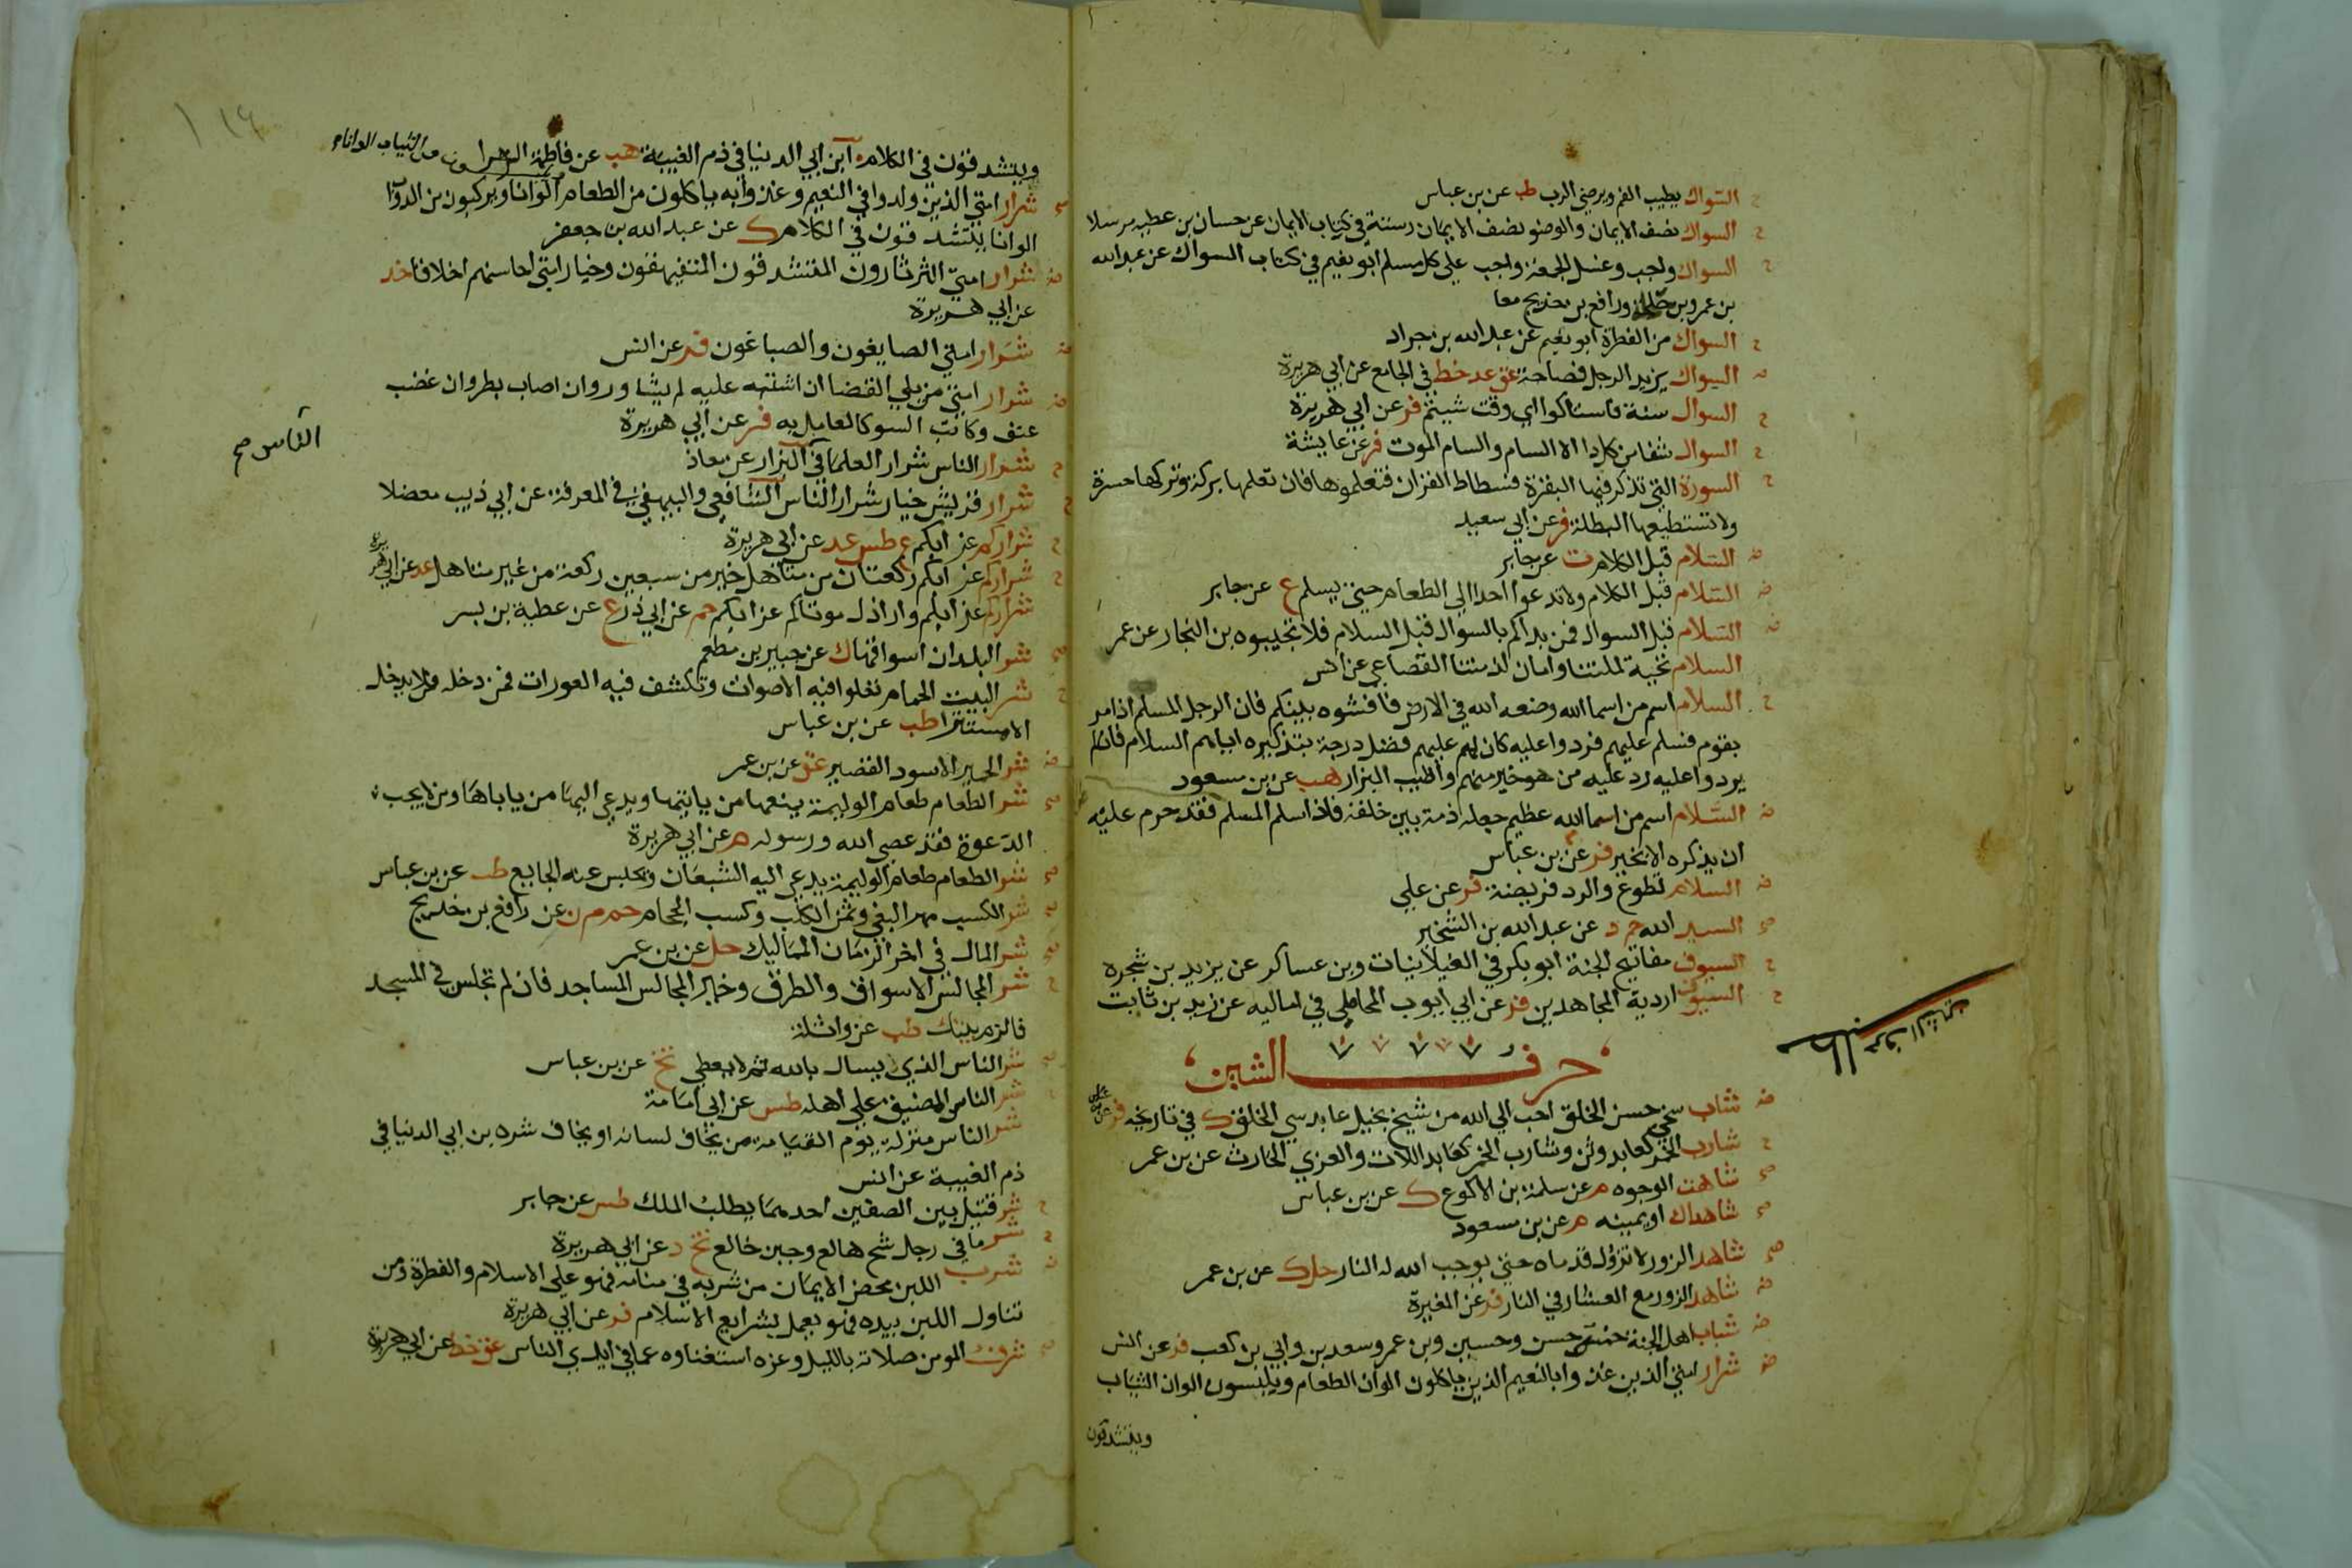 السواك يطيب الفم ويرضي الرب طب عن بن عباس
السواك نصف الايمان والوضو نصف الايمان رسته في كتاب الايمان عن حسان بن عطيه مرسلا
السواك واجب وغسل الجمعة واجب علي كل مسلم ابو نعيم في كتاب السواك عن عبد الله
بن عمرو بن حلحلة ورافع بن خديج معا
السواك من الفطرة ابو نعيم عن عبد الله بن جراد
السواك يزيد الرجل فصاحة عق عد خط في الجامع عن ابي هريرة
السواك سنة فاستاكوا اي وقت شيتم فر عن ابي هريرة
السواك شفا من كل دا الا السام والسام الموت فر عن عايشة
السورة التي تذكر فيها البقرة فسطاط القران فتعلموها فان تعلمها بركة وتركها حسرة
ولا تستطيعها البطلة فر عن ابي سعيد
السلام قبل الكلام ت عن جابر
السلام قبل الكلام ولا تدعوا احدا الي الطعام حتي يسلم ع عن جابر
السلام قبل السوال فمن بداكم بالسوال قبل السلام فلا تجيبوه بن النجار عن عمر
السلام تحية لملتنا وامان لذمتنا القضاعي عن انس
السلام اسم من اسما الله وضعه الله في الارض فافشوه بينكم فان الرجل المسلم اذا مر
بقوم فسلم عليهم فردوا عليه كان لهم عليهم فضل درجة بتذكيره اياهم السلام فان لم
يردوا عليه رد عليه من هو خير منهم واطيب البزار هب عن بن مسعود
السلام اسم من اسما الله عظيم جعله ذمة بين خلقه فاذا سلم المسلم فقد حرم عليه
ان يذكره الا بخير فر عن بن عباس
السلام تطوع والرد فريضة فر عن علي
السيد الله حم د عن عبد الله بن الشخير
السيوف مفاتيح الجنة ابو بكر في الغيلانيات وبن عساكر عن يزيد بن شجرة
السيوف اردية المجاهدين فر عن ابي ايوب المحاملي في اماليه عن زيد بن ثابت
حرف الشين
شاب سخي حسن الخلق احب الي الله من شيخ بخيل عابد سي الخلق ك في تاريخه فر
شارب الخمر كعابد وثن وشارب الخمر كعابد اللات والعزي الحارث عن بن عمر
شاهت الوجوه م عن سلمة بن الاكوع ك عن بن عباس
شاهداك او يمينه م عن بن مسعود
شاهد الزور لا تزول قدماه حتي يوجب الله له النار حل ك عن بن عمر
شاهد الزور مع العشار في النار فر عن المغيرة
شباب اهل الجنة خمسة حسن وحسين وبن عمر وسعد بن وابي بن كعب فر عن انس
شرار امتي الذين غذوا بالنعيم الذين ياكلون الوان الطعام ويلبسون الوان الثياب
ويتشدقون
ويتشدقون في الكلام ابن ابي الدنيا في ذم الغيبة هب عن فاطمة الزهرا
من الثياب الوانا
شرار امتي الذين ولدوا في النعيم وغذوا به ياكلون من الطعام الوانا ويركبون من الدواب
الوانا يتشدقون في الكلام ك عن عبد الله بن جعفر
شرار امتي الثرثارون المتشدقون المتفيهقون وخيار امتي احاسنهم اخلاقا خد
عن ابي هريرة
شرار امتي الصايغون والصباغون فر عن انس
شرار امتي من يلي القضا ان اشتبه عليه لم يشاور وان اصاب بطر وان غضب
عنف وكاتب السو كالعامل به فر عن ابي هريرة
شرار الناس شرار العلما في البزار عن معاذ
الناس صح
شرار قريش خيار شرار الناس الشافعي والبيهقي في المعرفة عن ابي ذيب معضلا
شراركم عزابكم ع طس عد عن ابي هريرة
شراركم عزابكم ركعتان من متاهل خير من سبعين ركعة من غير متاهل عد عن ابي هريرة
شراركم عزابكم واراذل موتاكم عزابكم حم عن ابي ذر ع عن عطية بن بسر
شر البلدان اسواقها ك عن جبير بن مطعم
شر البيت الحمام تعلوا فيه الاصوات وتكشف فيه العورات فمن دخله فلا يدخل
الا مستترا طب عن بن عباس
شر الحمير الاسود القصير عق عن بن عمر
شر الطعام طعام الوليمة يمنعها من ياتيها ويدعي اليها من ياباها ومن لا يجب
الدعوة فقد عصي الله ورسوله م عن ابي هريرة
شر الطعام طعام الوليمة يدعي اليه الشبعان ويحبس عنه الجايع طب عن بن عباس
شر الكسب مهر البغي وثمن الكلب وكسب الحجام حم م ن عن رافع بن خديج
شر المال في اخر الزمان المماليك حل عن بن عمر
شر المجالس الاسواق والطرق وخير المجالس المساجد فان لم تجلس في المسجد
فالزم بيتك طب عن واثلة
شر الناس الذي يسال بالله ثم لا يعطي تخ عن بن عباس
شر الناس المضيق علي اهله طس عن ابي امامة
شر الناس منزلة يوم القيامة من يخاف لسانه او يخاف شره بن ابي الدنيا في
ذم الغيبة عن انس
شر قتيل بين الصفين احدهما يطلب الملك طس عن جابر
شر ما في رجل شح هالع وجبن خالع تخ د عن ابي هريرة
شرب اللبن محض الايمان من شربه في منامه فهو علي الاسلام والفطرة ومن
تناول اللبن بيده فهو يعمل بشرايع الاسلام فر عن ابي هريرة
شرف المومن صلاته بالليل وعزه استغناوه عما في ايدي الناس عق خط عن ابي هريرة